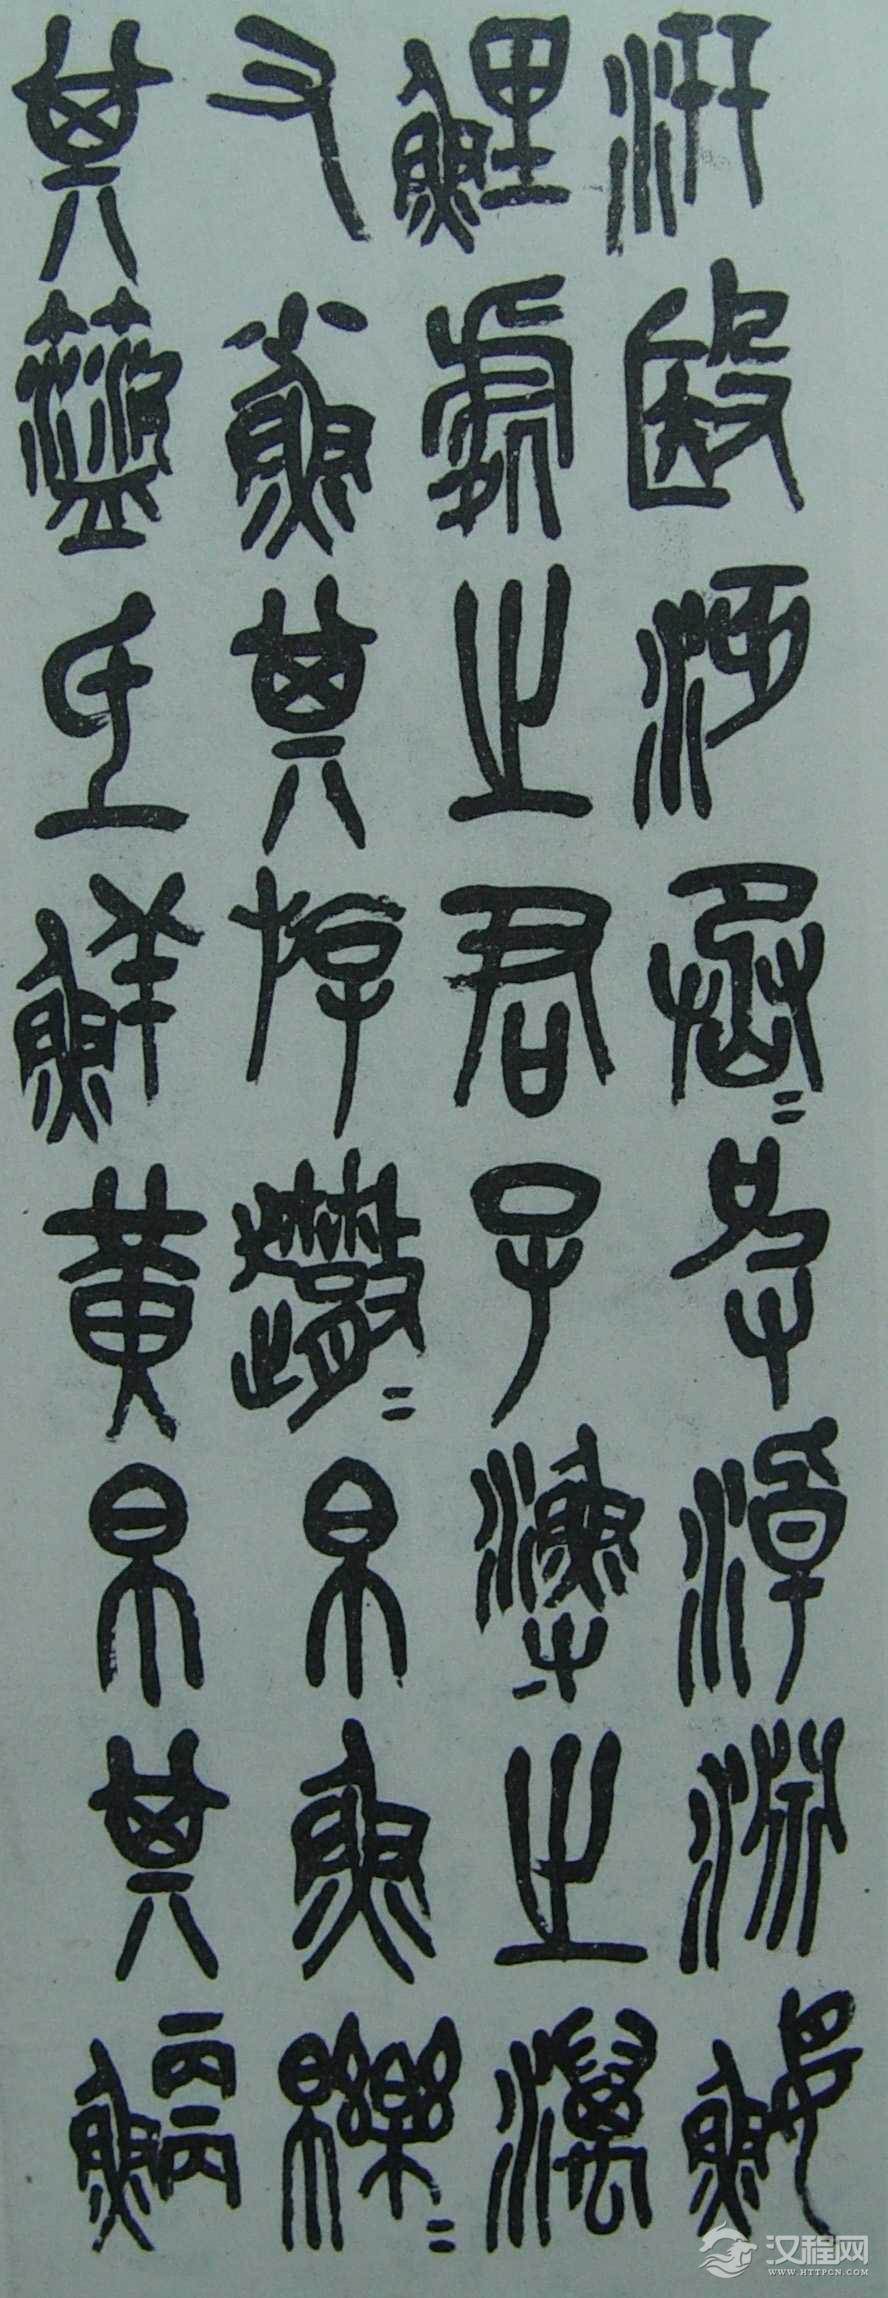 汧殹沔丞=皮淖淵鰋
鯉處之君子漁之澫
又小魚其斿帛魚皪=
其氐鮮黃帛其鯿
汉程网
WWW.HTTPCN.COM